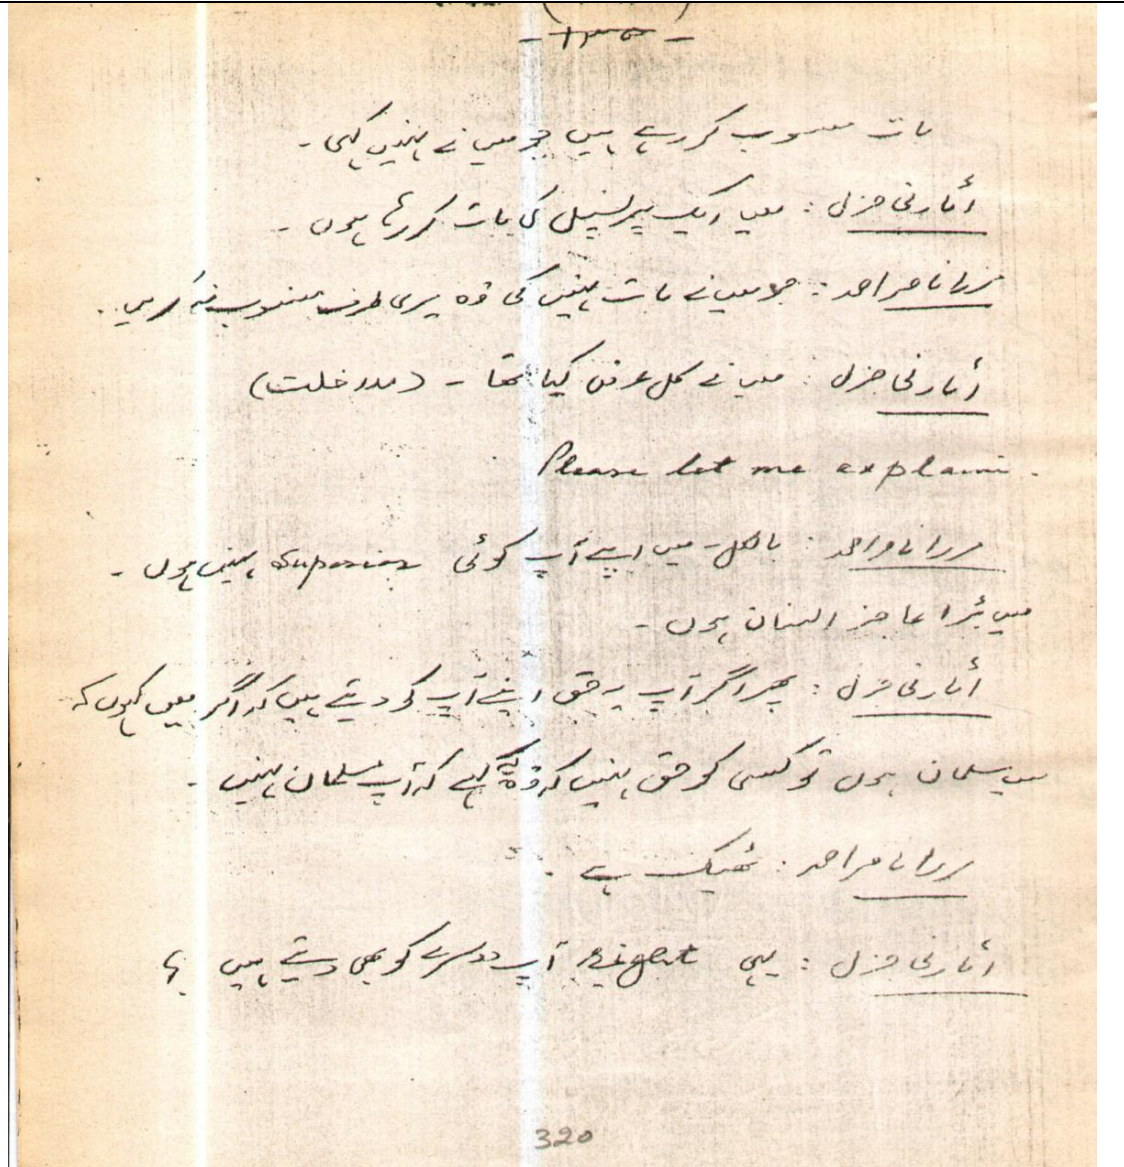 بات منسوب کر رہے ہیں جو میں نے نہیں کہی ۔
اٹارنی جنرل : میں ایک پرنسپل کی بات کر رہا ہوں ۔
مرزا ناصر احمد : جو میں نے بات نہیں کی وہ میری طرف منسوب نہ کریں ۔
اٹارنی جنرل : میں نے کل عرض کیا تھا ۔ (مداخلت)
Please let me explain.
مرزا ناصر احمد : بالکل ۔ میں اپنے آپ کوئی superior نہیں ہوں ۔
میں بڑا عاجز انسان ہوں ۔
اٹارنی جنرل : پھر اگر آپ یہ حق اپنے آپ کو دیتے ہیں کہ اگر میں کہوں کہ
میں مسلمان ہوں تو کسی کو حق نہیں کہ وہ یہ کہے کہ آپ مسلمان نہیں ۔
مرزا ناصر احمد : ٹھیک ہے ۔
اٹارنی جنرل : یہی right آپ دوسرے کو بھی دیتے ہیں ؟
320